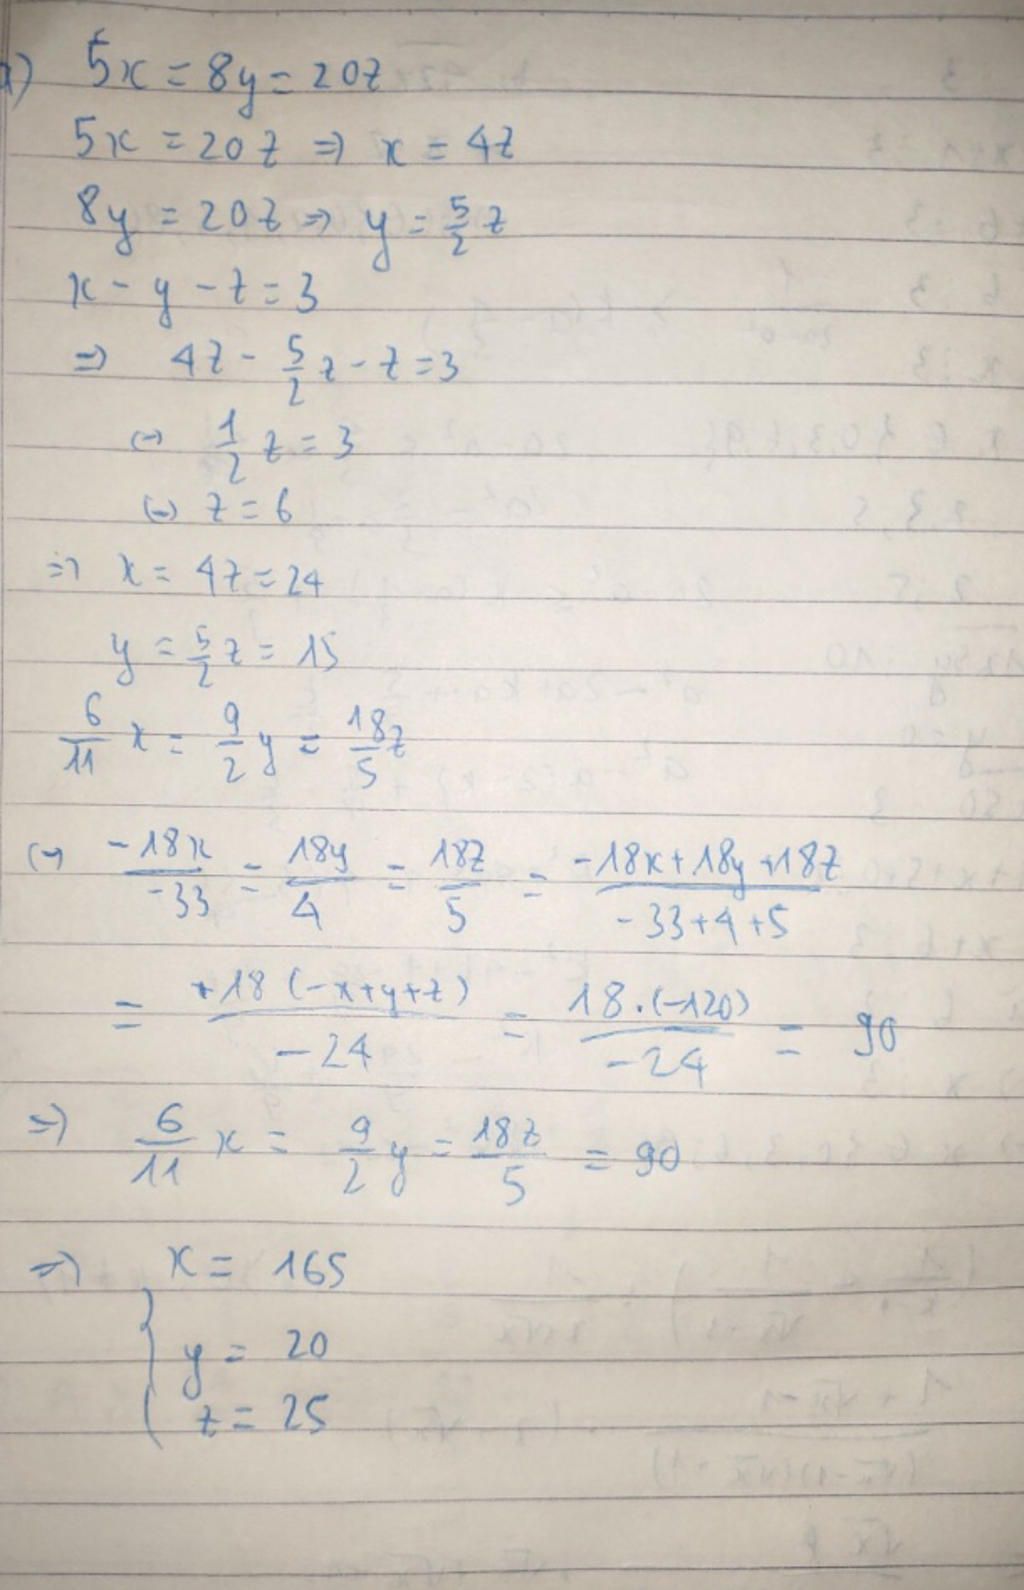 a) 5x = 8y = 20z
5x = 20z ⇒ x = 4z
8y = 20z ⇒ y = 5/2 z
x - y - z = 3
⇒ 4z - 5/2 z - z = 3
⇔ 1/2 z = 3
⇔ z = 6
⇒ x = 4z = 24
y = 5/2 z = 15
6/11 x = 9/2 y = 18/5 z
⇔ -18x/-33 = 18y/4 = 18z/5 = (-18x + 18y + 18z)/(-33+4+5)
= +18(-x+y+z)/-24 = 18.(-120)/-24 = 90
⇒ 6/11 x = 9/2 y = 18z/5 = 90
⇒ { x = 165
y = 20
z = 25